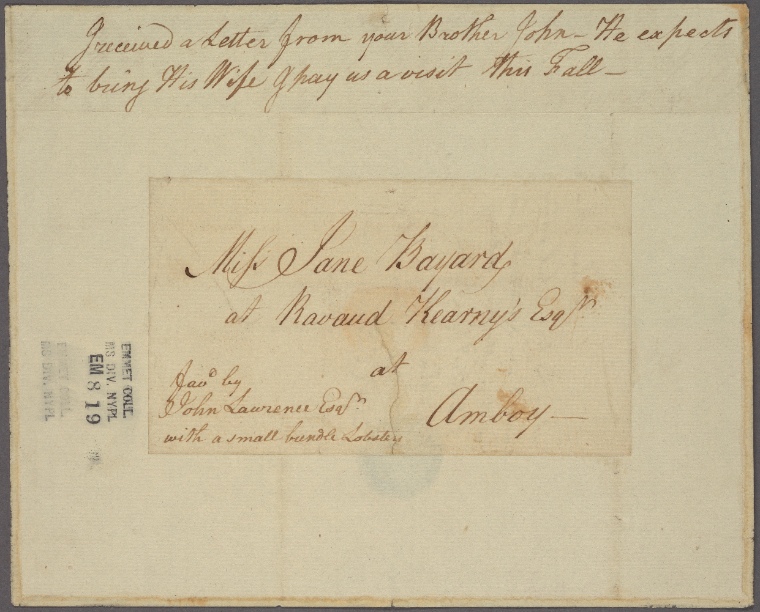 I received a Letter from your Brother John – He expects
to bring His Wife & pay us a visit this Fall –
Miſs Jane Bayard
at Ravaud Kearny's Esqr
at
Amboy —
favd by
John Lawrence Esqr
with a small bundle Lobster
EMMET COLL.
MS DIV. NYPL
EM 819
EMMET COLL
MS DIV. NYPL